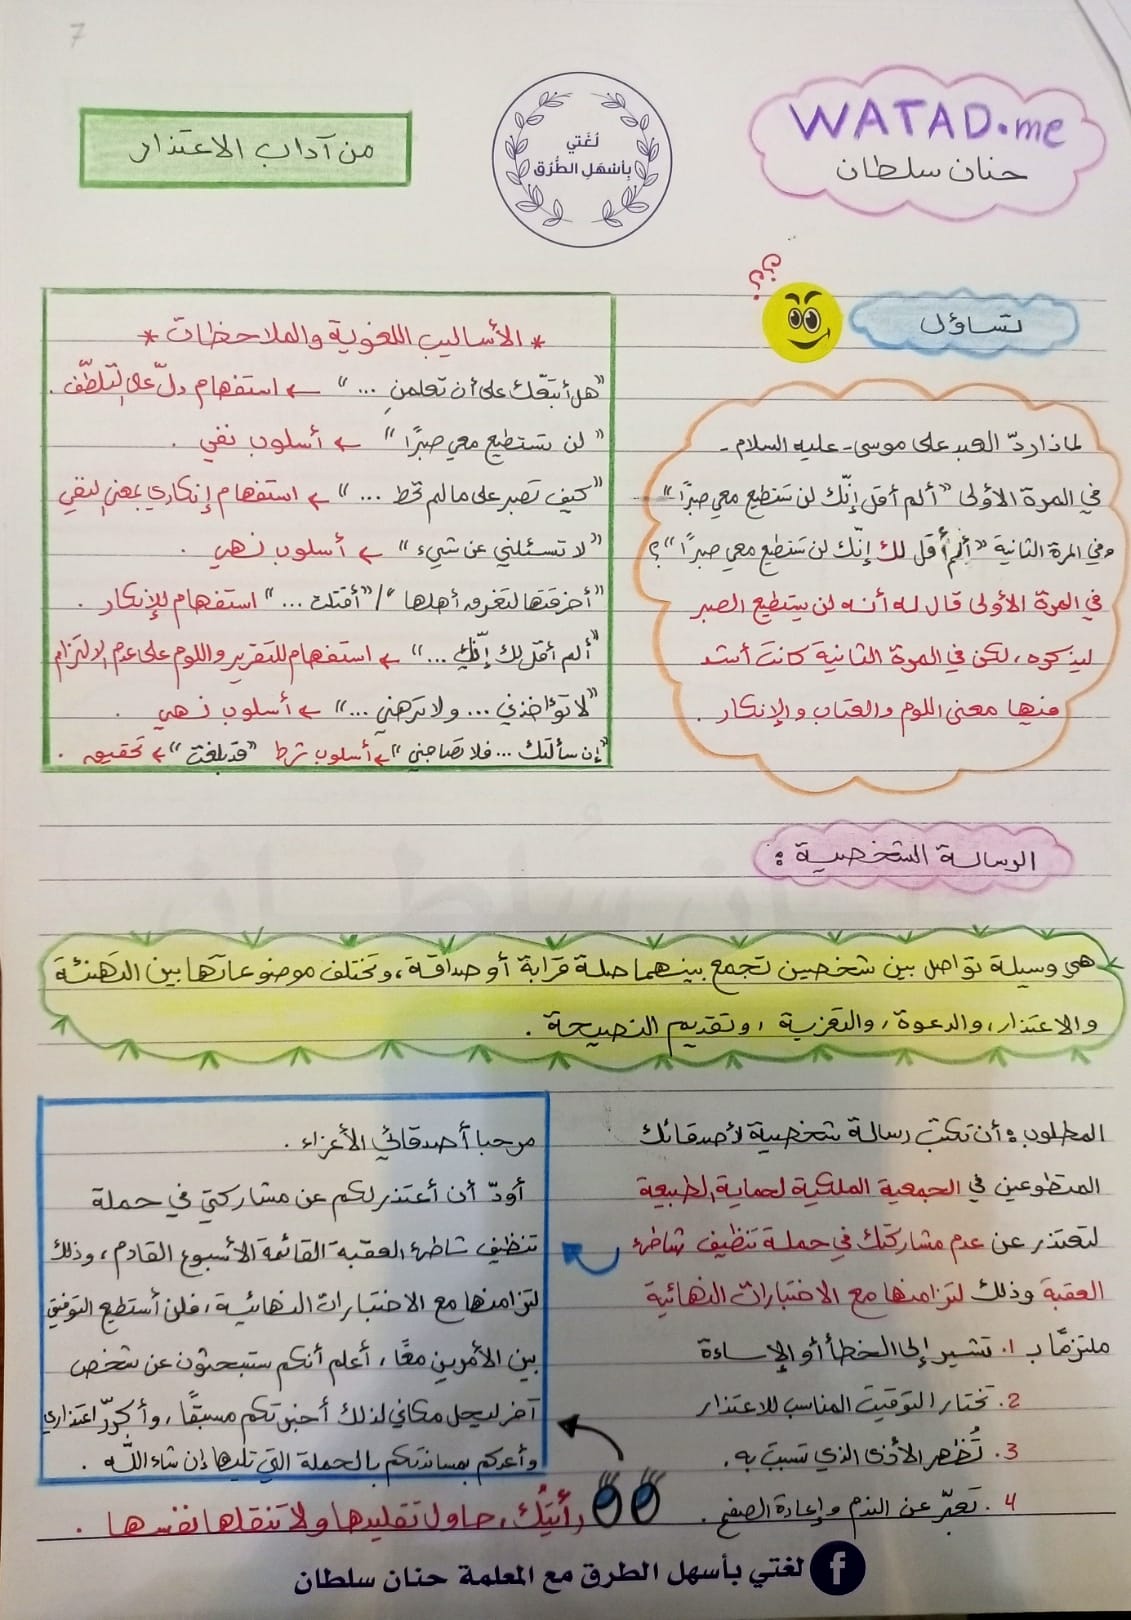 7
WATAD.me
حنان سلطان
لُغَتي
بِأَسْهَلِ الطُّرُق
من آداب الاعتذار
تساؤل
لماذا ردّ العبد على موسى - عليه السلام -
في المرة الأولى "ألم أقل إنّك لن تستطيع معي صبرًا"
وفي المرة الثانية "ألم أقل لك إنّك لن تستطيع معي صبرًا"؟
في المرة الأولى قال له أنه لن يستطيع الصبر
ليذكره، لكن في المرة الثانية كانت أشد
فيها معنى اللوم والعتاب والإنكار.
* الأساليب اللغوية والملاحظات *
"هل أتبّعك على أن تعلمنِ ..." ← استفهام دلّ على التلطّف.
"لن تستطيع معي صبرًا" ← أسلوب نفي.
"كيف تصبر على ما لم تحط ..." ← استفهام إنكاري بمعنى النفي
"لا تسئلني عن شيء" ← أسلوب نهي.
"أخرقتها لتغرق أهلها"/"أقتلت ..." استفهام للإنكار.
"ألم أقل لك إنّك ..." ← استفهام للتقرير واللوم على عدم الالتزام
"لا تؤاخذني ... ولا ترهقني ..." ← أسلوب نهي.
"إن سألتك ... فلا تصاحبني" ← أسلوب شرط "قد بلغت" ← تحقيق.
الرسالة الشخصية:
هي وسيلة تواصل بين شخصين تجمع بينهما صلة قرابة أو صداقة، وتختلف موضوعاتها بين التهنئة
والاعتذار، والدعوة، والتعزية، وتقديم النصيحة.
المطلوب: أن تكتب رسالة شخصية لأصدقائك
المتطوعين في الجمعية الملكية لحماية الطبيعة
لتعتذر عن عدم مشاركتك في حملة تنظيف شاطئ
العقبة وذلك لتزامنها مع الاختبارات النهائية
ملتزمًا ب 1. تشير إلى الخطأ أو الإساءة
2. تختار التوقيت المناسب للاعتذار
3. تُظهر الأذى الذي تسببت به.
4. تعبّر عن الندم وإعادة الصفح.
مرحبا أصدقائي الأعزاء.
أودّ أن أعتذر لكم عن مشاركتي في حملة
تنظيف شاطئ العقبة القائمة الأسبوع القادم، وذلك
لتزامنها مع الاختبارات النهائية، فلن أستطيع التوفيق
بين الأمرين معًا، أعلم أنكم ستبحثون عن شخص
آخر ليحل مكاني لذلك أخبرتكم مسبقًا، وأكرّر اعتذاري
وأعدكم بمساندتكم بالحملة التي تليها إن شاء الله.
رأيتُك، حاول تقليدها ولا تنقلها نفسها.
لغتي بأسهل الطرق مع المعلمة حنان سلطان